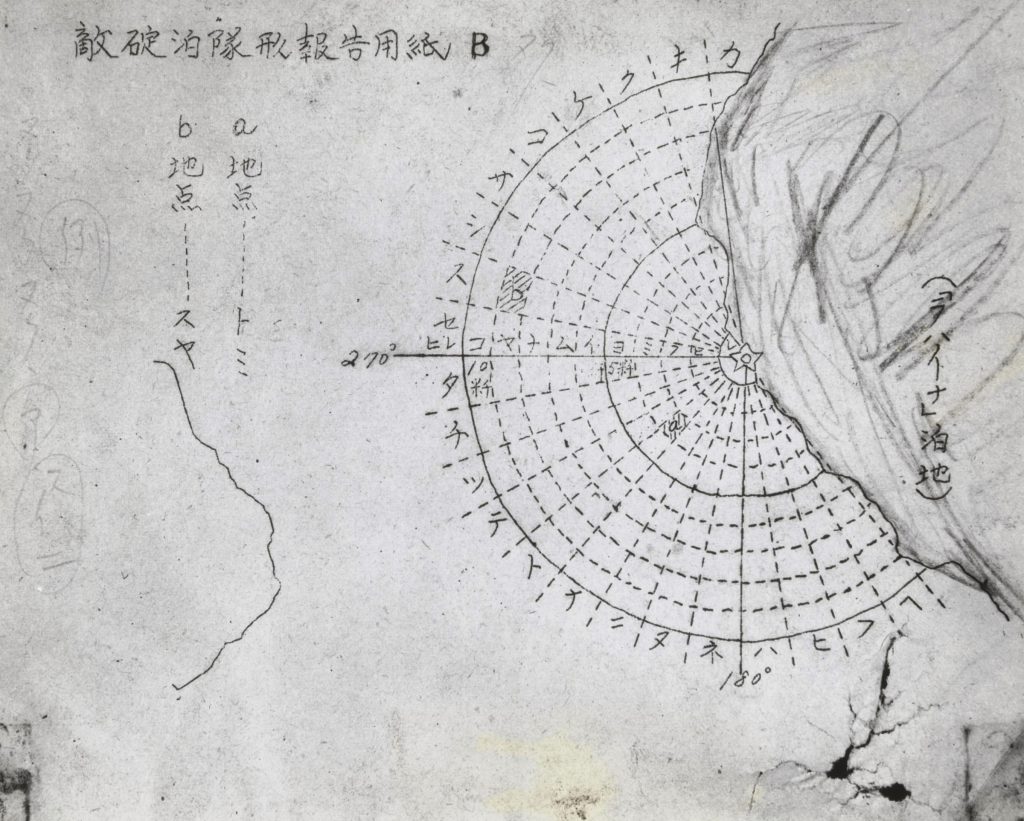 敵碇泊隊形報告用紙 B
a地点------トミ
b地点------スヤ
カ
キ
ク
ケ
コ
サ
シ
ス
セ
タ
チ
ツ
テ
ト
ナ
ニ
ヌ
ネ
ハ
ヒ
フ
ヘ
270°
コ ヤ ナ ム イ ヨ ミ フ ヒ
10粁
5粁
b
a
180°
(「ラハイナ」泊地)
例